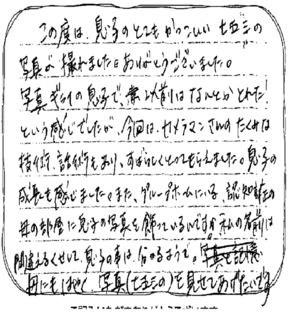 この度は、息子のとてもかっこいい 七五三の
写真が撮れました。ありがとうございました。
写真ギライの息子で、兼ル前りはなんとかとれた!
という感じでしたが、今回は、カメラマンさんのたくみな
技術、話術もあり、すばらしくとってもらえました。息子の
成長を感じました。また、グループホームにいる、認知症の
母の部屋に息子の写真を飾っているんですが、私の名前は
間違えるくせして、息子の事は、分かるようで。
母にもはやく、写真(七五三の)を見せてあげたいです